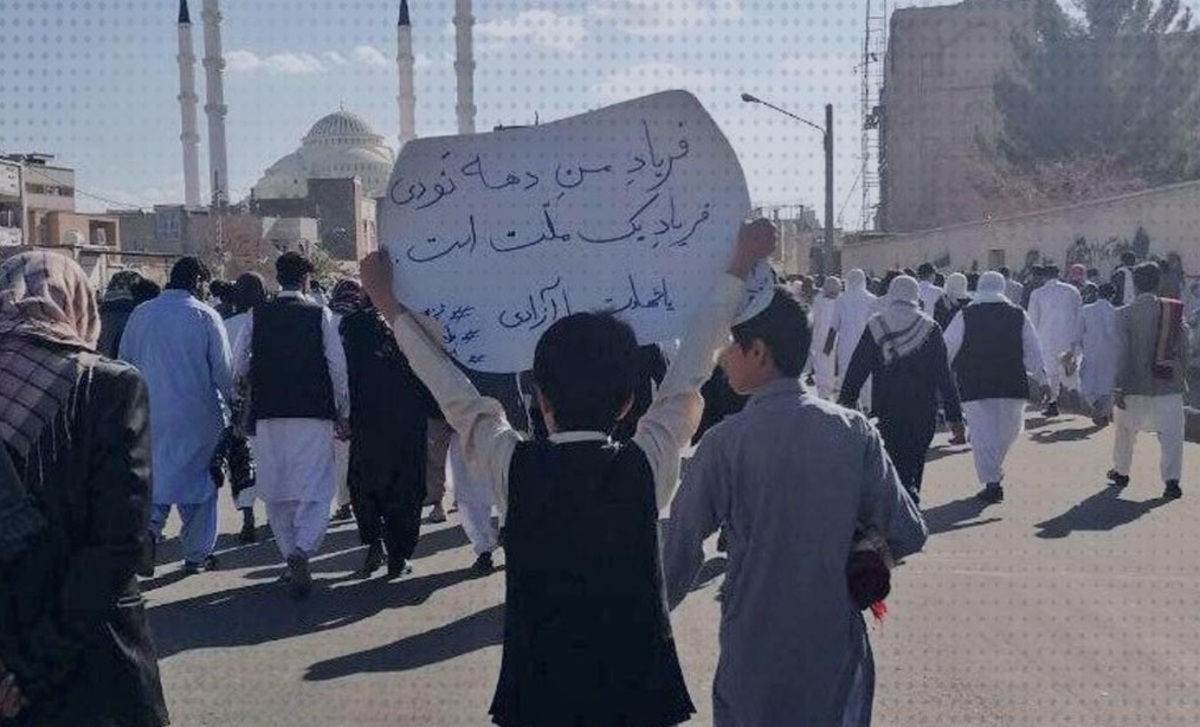 فریادِ من دهه نودی
فریادِ یک ملّت است.
یا شهادت یا آزادی